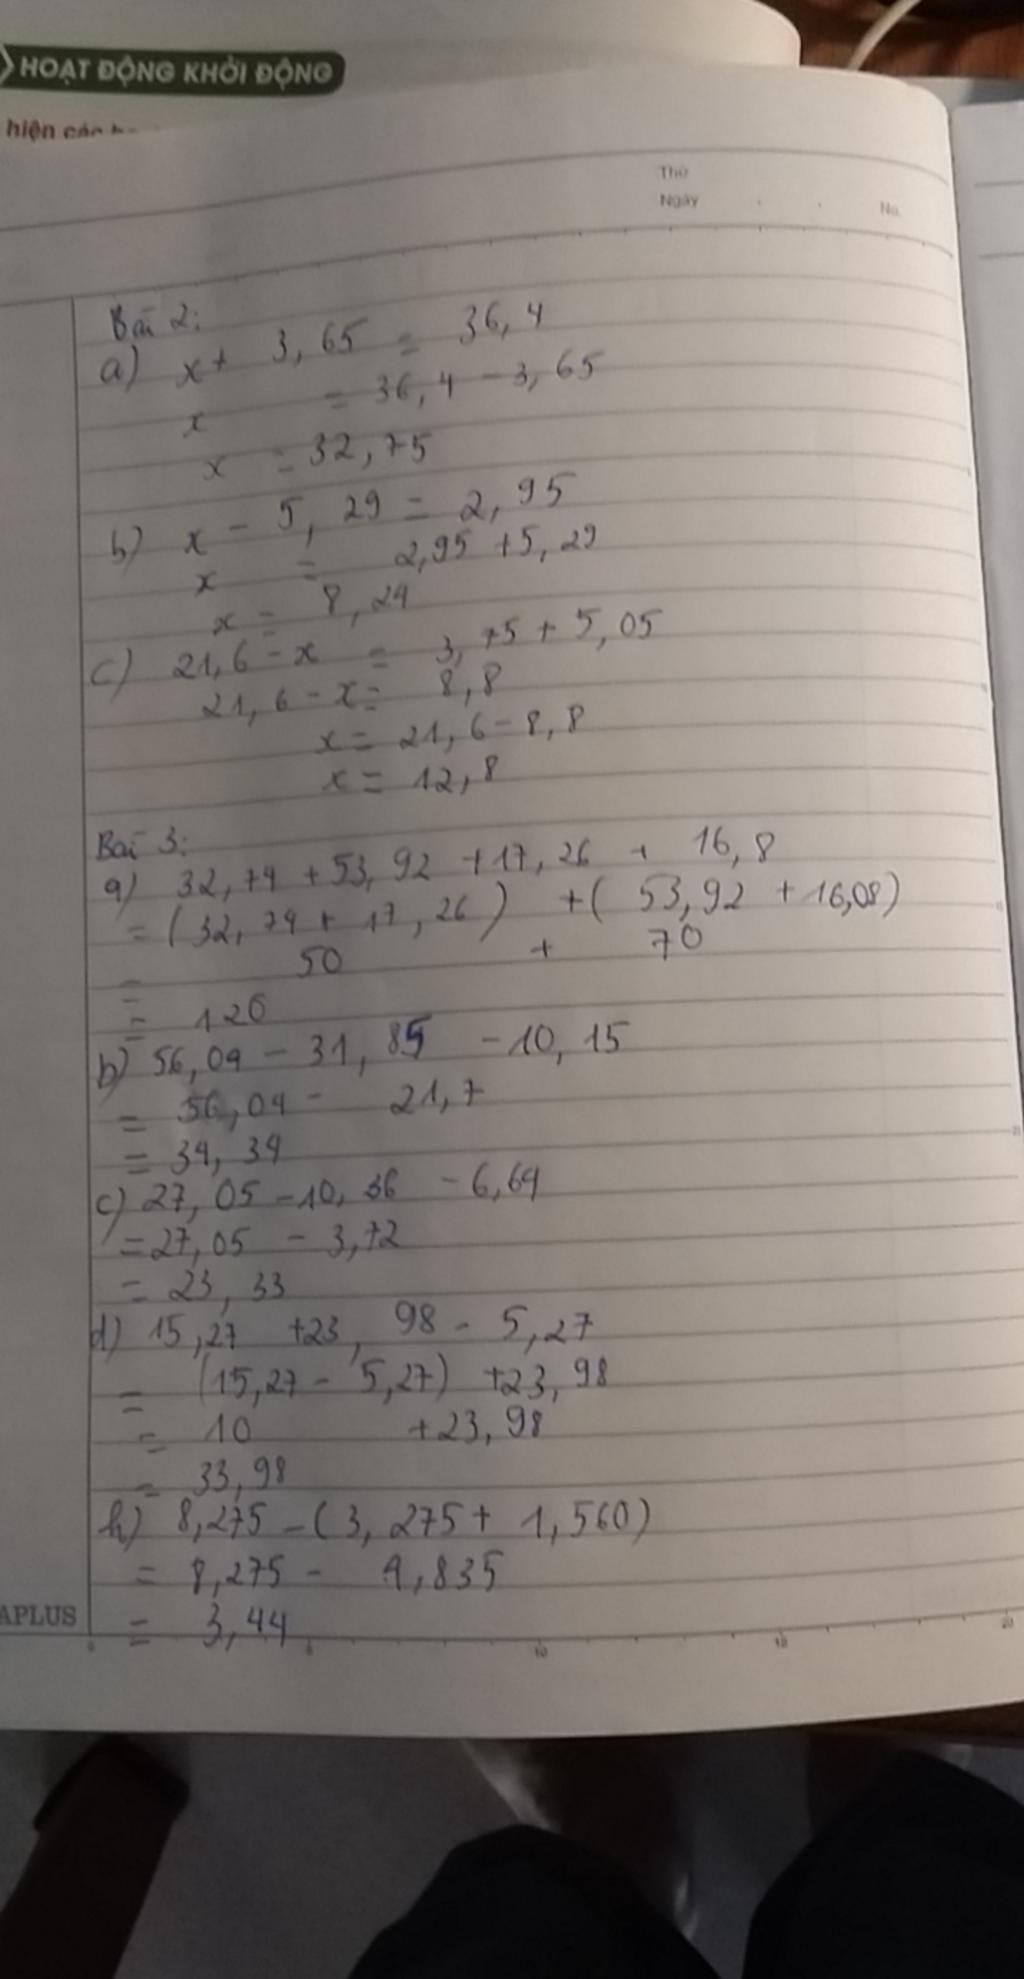 HOẠT ĐỘNG KHỞI ĐỘNG
hiện các
Thứ
Ngày
No.
Bài 2:
a) x + 3,65 = 36,4
x = 36,4 - 3,65
x = 32,75
b) x - 5,29 = 2,95
x = 2,95 + 5,29
x = 8,24
c) 21,6 - x = 3,75 + 5,05
21,6 - x = 8,8
x = 21,6 - 8,8
x = 12,8
Bài 3:
a) 32,74 + 53,92 + 17,26 + 16,8
= (32,74 + 17,26) + (53,92 + 16,08)
= 50 + 70
= 120
b) 56,04 - 31,85 - 10,15
= 56,04 - 21,7
= 34,34
c) 27,05 - 10,36 - 6,64
= 27,05 - 3,72
= 23,33
d) 15,27 + 23,98 - 5,27
= (15,27 - 5,27) + 23,98
= 10 + 23,98
= 33,98
h) 8,275 - (3,275 + 1,560)
= 8,275 - 4,835
= 3,44
APLUS
0 5 10 15 20